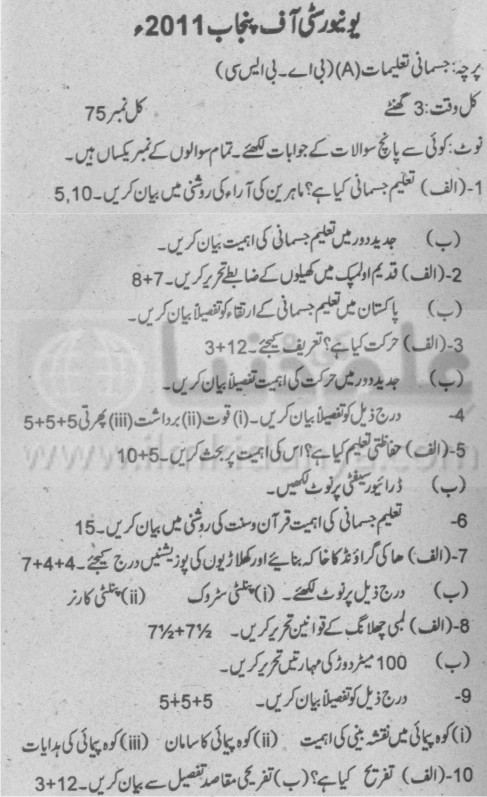 یونیورسٹی آف پنجاب 2011ء
پرچہ: جسمانی تعلیمات (A) (بی اے۔ بی ایس سی)
کل وقت: 3 گھنٹے کل نمبر 75
نوٹ: کوئی سے پانچ سوالات کے جوابات لکھئے۔ تمام سوالوں کے نمبر یکساں ہیں۔
1-(الف) تعلیم جسمانی کیا ہے؟ ماہرین کی آراء کی روشنی میں بیان کریں۔ 5,10
(ب) جدید دور میں تعلیم جسمانی کی اہمیت بیان کریں۔
2-(الف) قدیم اولمپک میں کھیلوں کے ضابطے تحریر کریں۔ 7+8
(ب) پاکستان میں تعلیم جسمانی کے ارتقاء کو تفصیلاً بیان کریں۔
3-(الف) حرکت کیا ہے؟ تعریف کیجئے۔ 12+3
(ب) جدید دور میں حرکت کی اہمیت تفصیلاً بیان کریں۔
4- درج ذیل کو تفصیلاً بیان کریں۔ (i) قوت (ii) برداشت (iii) پھرتی 5+5+5
5-(الف) حفاظتی تعلیم کیا ہے؟ اس کی اہمیت پر بحث کریں۔ 5+10
(ب) ڈرائیور سیفٹی پر نوٹ لکھیں۔
6- تعلیم جسمانی کی اہمیت قرآن و سنت کی روشنی میں بیان کریں۔ 15
7-(الف) ہاکی گراؤنڈ کا خاکہ بنائیے اور کھلاڑیوں کی پوزیشنیں درج کیجئے۔ 4+4+7
(ب) درج ذیل پر نوٹ لکھئے۔ (i) پنلٹی سٹروک (ii) پنلٹی کارنر
8-(الف) لمبی چھلانگ کے قوانین تحریر کریں۔ 7½+7½
(ب) 100 میٹر دوڑ کی مہارتیں تحریر کریں۔
9- درج ذیل کو تفصیلاً بیان کریں۔ 5+5+5
(i) کوہ پیمائی میں نقشہ بینی کی اہمیت (ii) کوہ پیمائی کا سامان (iii) کوہ پیمائی کی ہدایات
10-(الف) تفریح کیا ہے؟ (ب) تفریحی مقاصد تفصیل سے بیان کریں۔ 12+3
علم کی دنیا
www.ilmkidunya.com